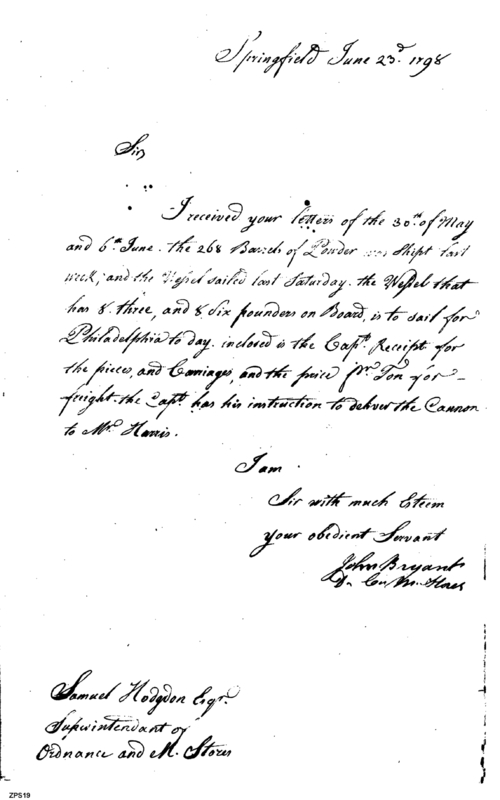 Springfield June 23d. 1798
Sir,
I received your letters of the 30th. of May
and 6th. June. the 268 Barrels of Powder was Shipt last
week, and the Vessel sailed last Saturday. the Vessel that
has 8 three, and 8 six pounders on Board, is to sail for
Philadelphia to day. inclosed is the Capts. Receipt for
the pieces, and Carriages, and the price pr. Ton for
freight. the Capt. has his instruction to deliver the Cannon
to Mr. Harris.
I am
Sir with much Esteem
your obedient Servant
John Bryant
Samuel Hodgdon Esqr.
Superintendant of
Ordnance and M. Stores
ZPS19